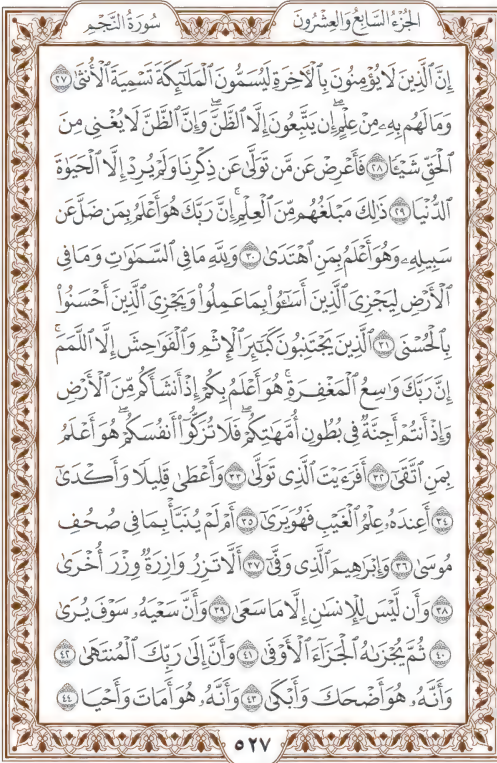 سُورَةُ النَّجْمِ
الجُزْءُ السَّابِعُ وَالعِشْرُونَ
إِنَّ ٱلَّذِينَ لَا يُؤْمِنُونَ بِٱلْـَٔاخِرَةِ لَيُسَمُّونَ ٱلْمَلَـٰٓئِكَةَ تَسْمِيَةَ ٱلْأُنثَىٰ ٢٧
وَمَا لَهُم بِهِۦ مِنْ عِلْمٍ ۖ إِن يَتَّبِعُونَ إِلَّا ٱلظَّنَّ ۖ وَإِنَّ ٱلظَّنَّ لَا يُغْنِى مِنَ
ٱلْحَقِّ شَيْـًٔا ٢٨ فَأَعْرِضْ عَن مَّن تَوَلَّىٰ عَن ذِكْرِنَا وَلَمْ يُرِدْ إِلَّا ٱلْحَيَوٰةَ
ٱلدُّنْيَا ٢٩ ذَٰلِكَ مَبْلَغُهُم مِّنَ ٱلْعِلْمِ ۚ إِنَّ رَبَّكَ هُوَ أَعْلَمُ بِمَن ضَلَّ عَن
سَبِيلِهِۦ وَهُوَ أَعْلَمُ بِمَنِ ٱهْتَدَىٰ ٣٠ وَلِلَّهِ مَا فِى ٱلسَّمَـٰوَٰتِ وَمَا فِى
ٱلْأَرْضِ لِيَجْزِىَ ٱلَّذِينَ أَسَـٰٓـُٔوا۟ بِمَا عَمِلُوا۟ وَيَجْزِىَ ٱلَّذِينَ أَحْسَنُوا۟
بِٱلْحُسْنَى ٣١ ٱلَّذِينَ يَجْتَنِبُونَ كَبَـٰٓئِرَ ٱلْإِثْمِ وَٱلْفَوَٰحِشَ إِلَّا ٱللَّمَمَ ۚ
إِنَّ رَبَّكَ وَٰسِعُ ٱلْمَغْفِرَةِ ۚ هُوَ أَعْلَمُ بِكُمْ إِذْ أَنشَأَكُم مِّنَ ٱلْأَرْضِ
وَإِذْ أَنتُمْ أَجِنَّةٌ فِى بُطُونِ أُمَّهَـٰتِكُمْ ۖ فَلَا تُزَكُّوٓا۟ أَنفُسَكُمْ ۖ هُوَ أَعْلَمُ
بِمَنِ ٱتَّقَىٰٓ ٣٢ أَفَرَءَيْتَ ٱلَّذِى تَوَلَّىٰ ٣٣ وَأَعْطَىٰ قَلِيلًا وَأَكْدَىٰٓ
٣٤ أَعِندَهُۥ عِلْمُ ٱلْغَيْبِ فَهُوَ يَرَىٰٓ ٣٥ أَمْ لَمْ يُنَبَّأْ بِمَا فِى صُحُفِ
مُوسَىٰ ٣٦ وَإِبْرَٰهِيمَ ٱلَّذِى وَفَّىٰٓ ٣٧ أَلَّا تَزِرُ وَازِرَةٌ وِزْرَ أُخْرَىٰ
٣٨ وَأَن لَّيْسَ لِلْإِنسَـٰنِ إِلَّا مَا سَعَىٰ ٣٩ وَأَنَّ سَعْيَهُۥ سَوْفَ يُرَىٰ
٤٠ ثُمَّ يُجْزَىٰهُ ٱلْجَزَآءَ ٱلْأَوْفَىٰ ٤١ وَأَنَّ إِلَىٰ رَبِّكَ ٱلْمُنتَهَىٰ ٤٢
وَأَنَّهُۥ هُوَ أَضْحَكَ وَأَبْكَىٰ ٤٣ وَأَنَّهُۥ هُوَ أَمَاتَ وَأَحْيَا ٤٤
٥٢٧